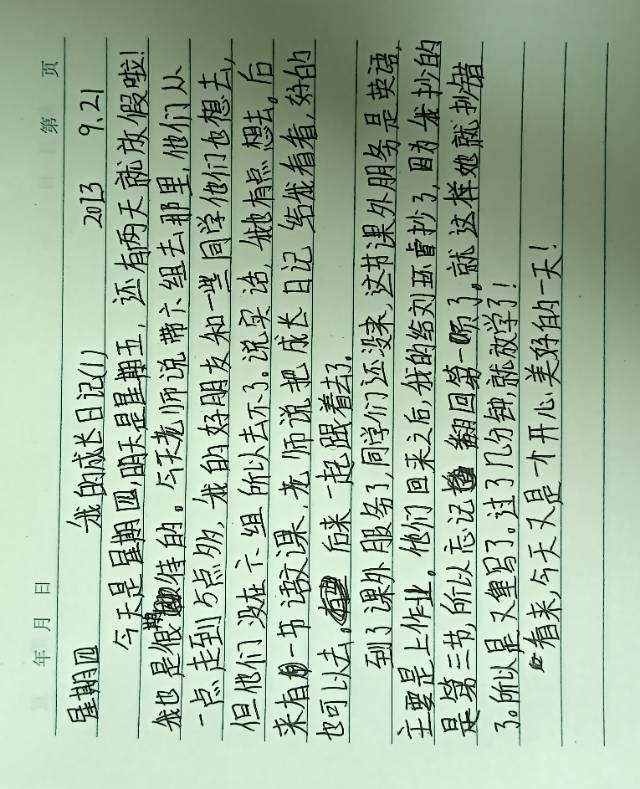 年 月 日 第 页
星期四 我的成长日记(1) 2013 9.21
今天是星期四,明天是星期五,还有两天就放假啦!
我也是很期待的。今天老师说带六组去那里,他们从
一点走到5点多,我的好朋友和一些同学他们也想去,
但他们没在六组所以去不了。说实话,我有点想去。后
来有一节语文课,老师说把成长日记给我看看,好的
也可以去。后来一起跟着去了。
到了课外服务了,同学们还没来,这节课外服务是英语,
主要是上作业。他们回来之后,我的给刘环睿抄了,因为我抄的
是第三节,所以忘记翻回第一顺了。就这样她就抄错
了。所以是又重写了。过了几分钟,就放学了!
看来,今天又是一个开心、美好的一天!